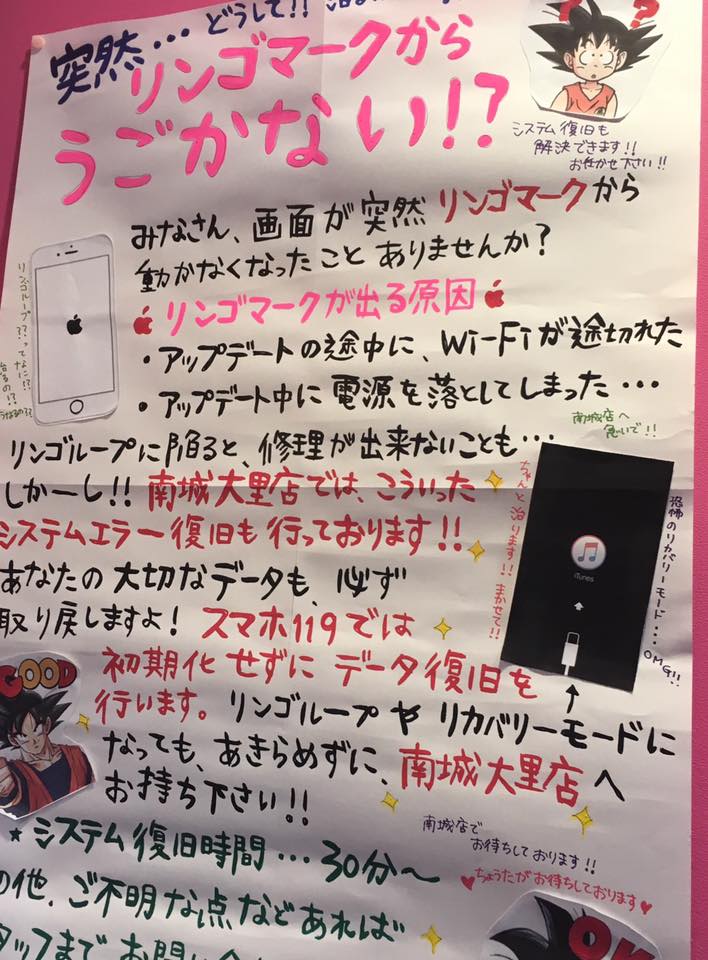 突然… どうして!!
リンゴマークから
うごかない!?
システム復旧も
解決できます!!
お任せ下さい!!
みなさん、画面が突然 リンゴマークから
動かなくなったこと ありませんか?
リンゴマークが出る原因
・アップデートの途中に、Wi-Fiが途切れた
・アップデート中に 電源を落としてしまった…
リンゴループ??ってなに!?
南城店へ
急いで!!
リンゴループに陥ると、修理が出来ないことも…
しかーし!! 南城大里店では、こういった
システムエラー復旧も行っております!!
あなたの大切なデータも、必ず
取り戻しますよ! スマホ119では
初期化せずに データ復旧を
行います。リンゴループや リカバリーモードに
なっても、あきらめずに、南城大里店へ
お持ち下さい!!
ちゃんと治ります!! まかせて!!
iTunes
恐怖のリカバリーモード… OMG!!
GOOD
南城店で
お待ちしております!!
ちょうたがお待ちしております
★システム復旧時間…30分〜
の他、ご不明な点などあれば
タッフまで お問い合
OK